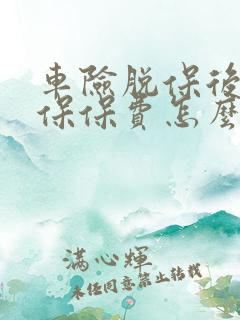 車險脫保後
保保費怎麼
滿心輝
未經同意禁止轉載